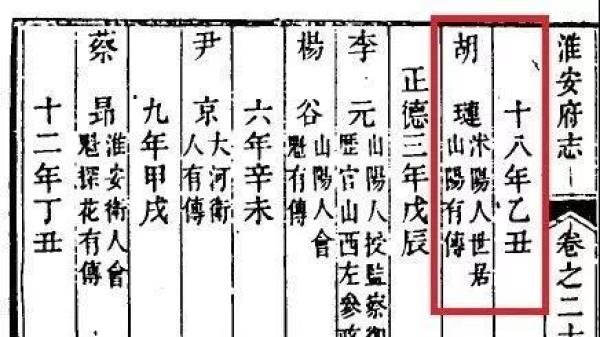 淮安府志
卷之二十
十八年乙丑
胡璉
沭陽人世居
山陽有傳
正德三年戊辰
李元
山陽人授監察御
歷官山西左參政
楊谷
山陽人會
魁有傳
六年辛未
尹京
大河衛
人有傳
九年甲戌
蔡昂
淮安衛人會
魁探花有傳
十二年丁丑